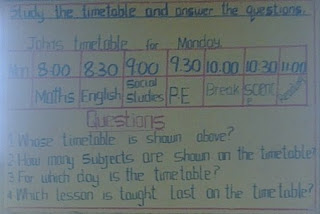 Study the timetable and answer the questions.
John's timetable for Monday.
Mon 8.00 8.30 9.00 9.30 10.00 10.30 11.00
Maths English Social Studies P.E Break
Questions
1 Whose timetable is shown above?
2 How many subjects are shown on the timetable?
3 For which day is the timetable?
4 Which lesson is taught last on the timetable?